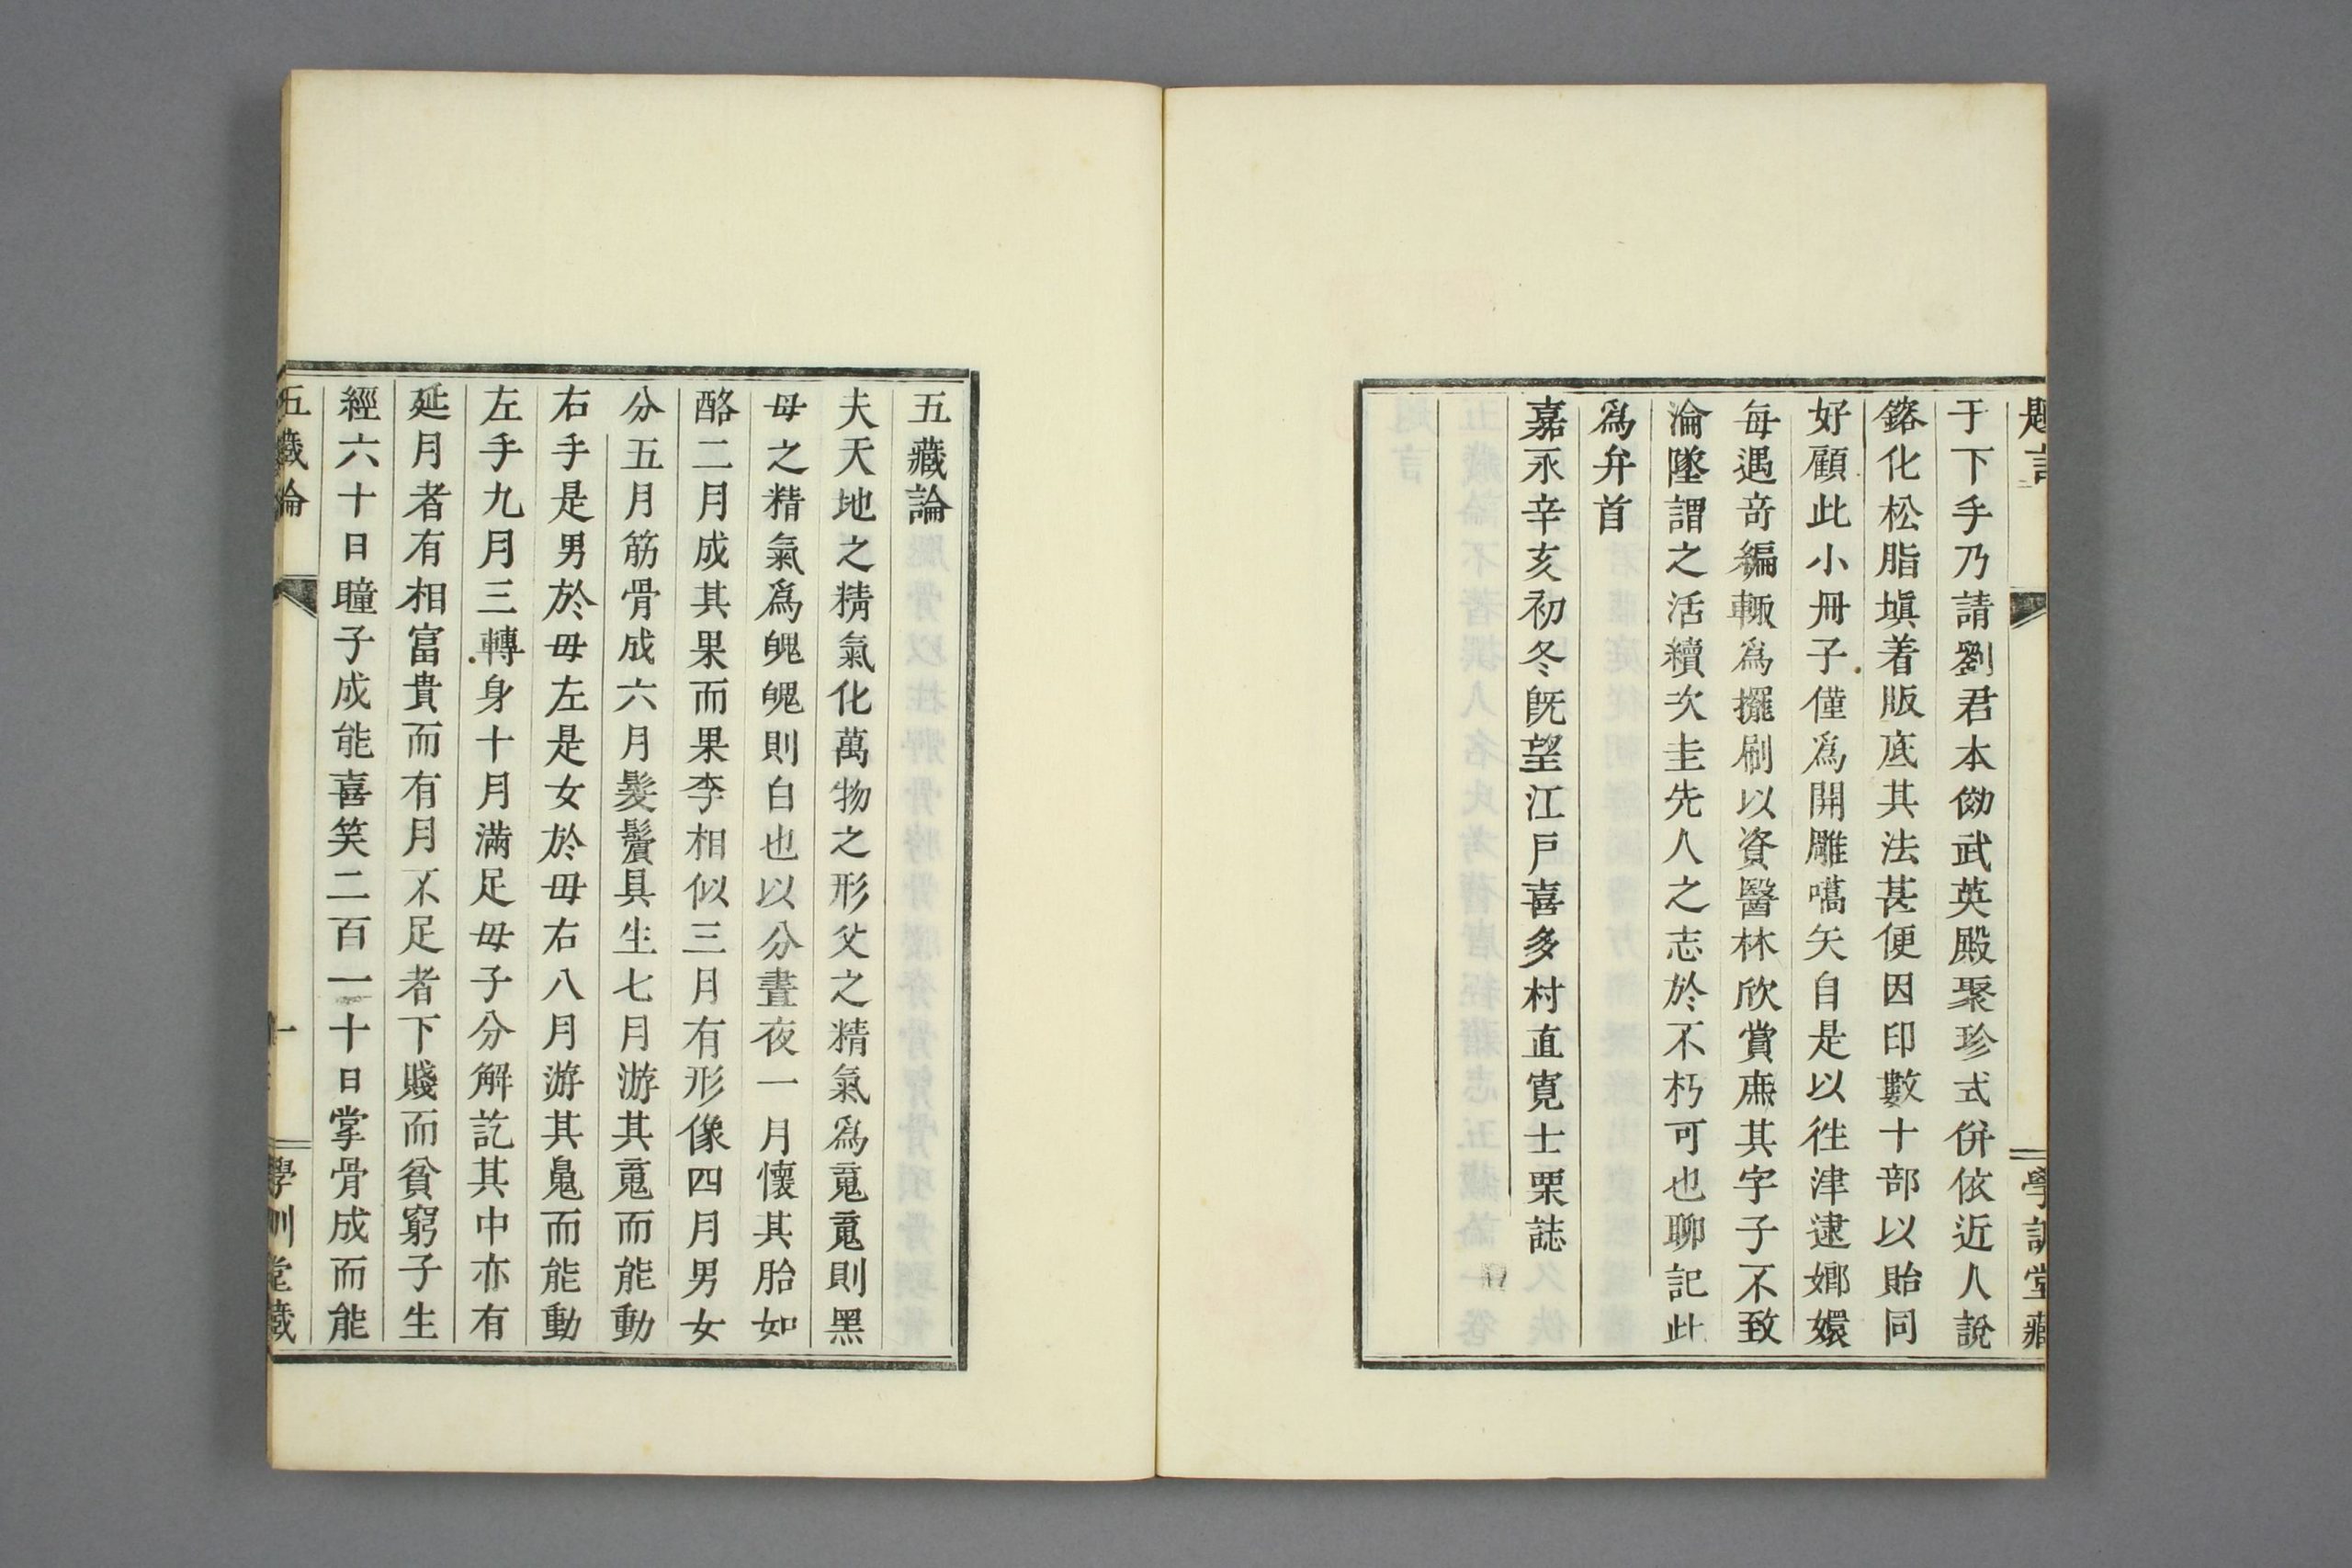 題言
學訓堂藏
于下手乃請劉君本倣武英殿聚珍式併依近人說
鎔化松脂塡着版底其法甚便因印數十部以貽同
好顧此小冊子僅爲開雕嚆矢自是以徃津逮嫏嬛
每遇奇編輙爲擺刷以資醫林欣賞庶其字子不致
淪墜謂之活續次圭先人之志於不朽可也聊記此
爲弁首
嘉永辛亥初冬既望江戶喜多村直寬士栗誌
五藏論
夫天地之精氣化萬物之形父之精氣爲䰟䰟則黑
母之精氣爲魄魄則白也以分晝夜一月懷其胎如
酪二月成其果而果李相似三月有形像四月男女
分五月筋骨成六月髮鬢具生七月游其䰟而能動
右手是男於母左是女於母右八月游其鬼而能動
左手九月三轉身十月滿足母子分解訖其中亦有
延月者有相富貴而有月不足者下賤而貧窮子生
經六十日瞳子成能喜笑二百一十日掌骨成而能
五藏論
一
學訓堂藏